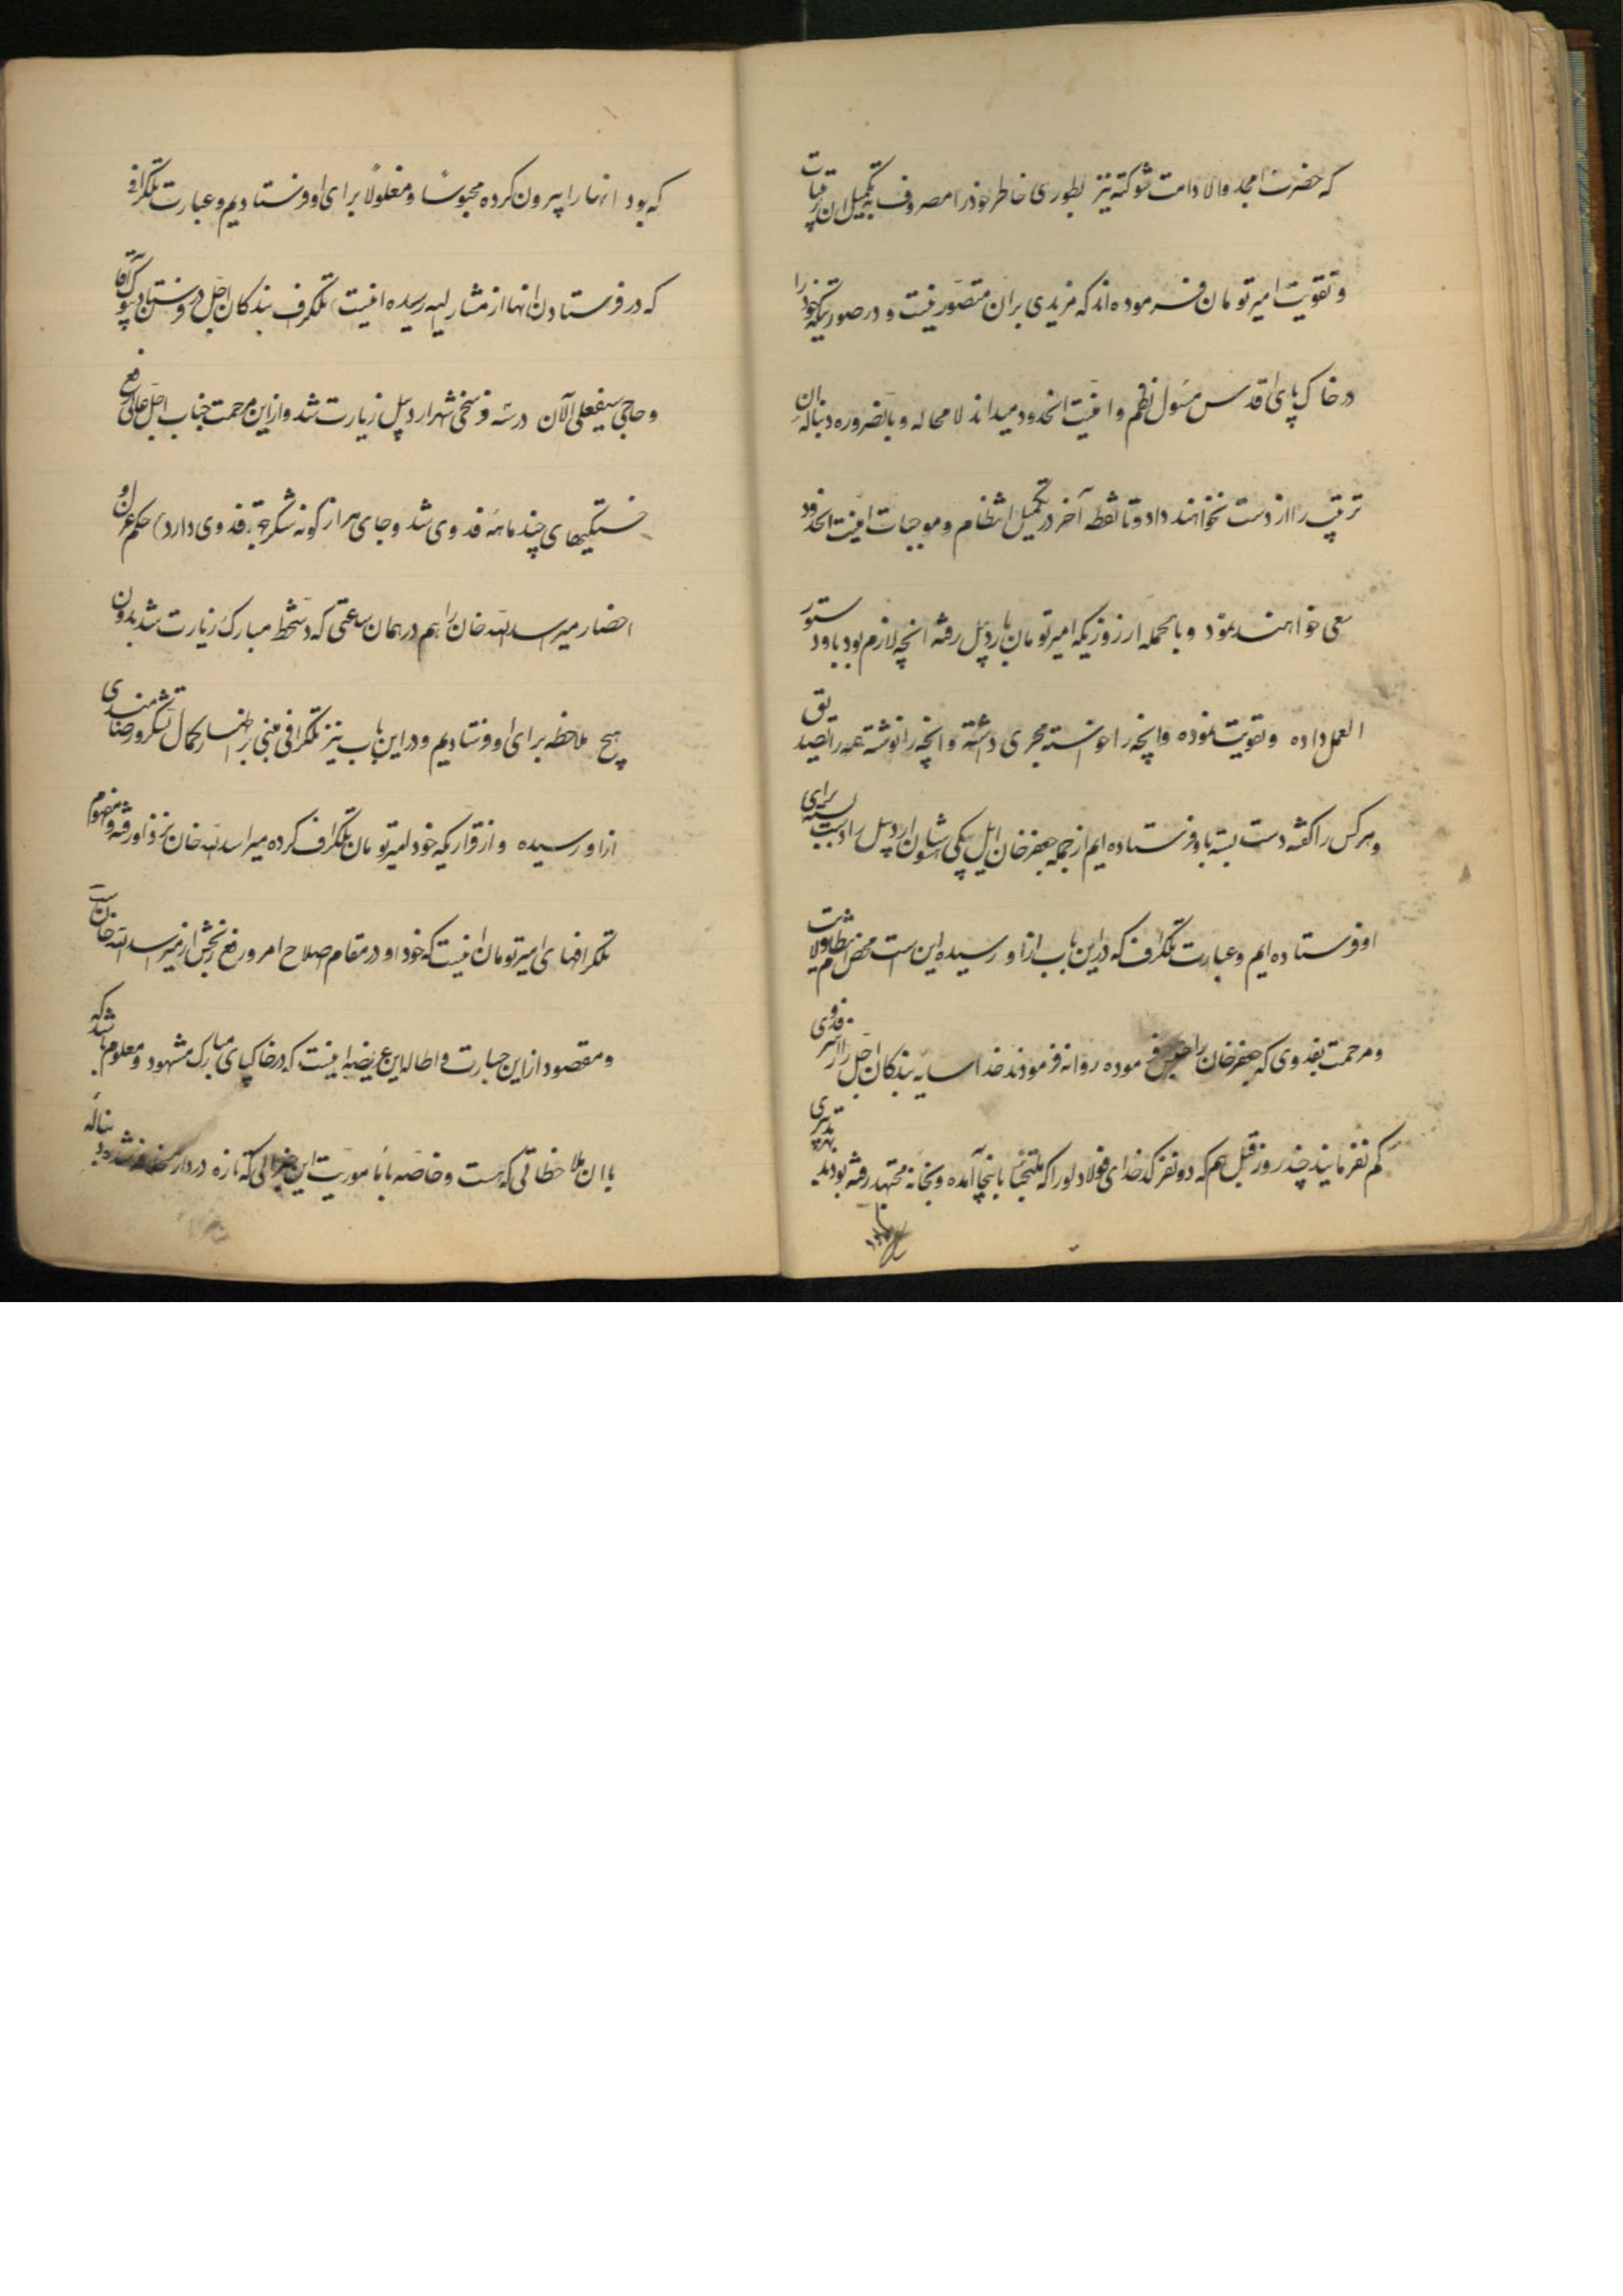 که حضرت امجد والا دامت شوکته نیز بطوری خاطر خود را مصروف به تکمیل این ترتیبات
و تقویت امیر تومان فرموده‌اند که مزیدی بر آن متصور نیست و در صورتیکه خود را
در خاک پای اقدس مسئول نظم و امنیت انحدود میداند لامحاله و بالضروره دنباله این
ترتیب را از دست نخواهند داد و تا نقطه آخر در تکمیل انتظام و موجبات امنیت انحدود
سعی خواهند نمود و بالجمله از روزیکه امیر تومان باردبیل رفته انچه لازم بود باو دستور
العمل داده و تقویت نموده و انچه را خواسته مجری داشته و انچه را نوشته همه را تصدیق
و هر کس را گفته دست بسته باو فرستاده‌ایم از جمله جعفر خان ایل بیکی شاهسون اردبیل را دست بسته برای
او فرستاده‌ایم و عبارت تلگراف که در این باب از او رسیده این است محض انتظام ولایت
و مرحمت بفدوی که جعفر خان را فرموده روانه فرمودند خدا سایه بندگان اجل را از سر فدوی
کم نفرماید چند روز قبل هم که دو نفر کدخدای فولادلو را که ملتجئا باینجا آمده و بخانه مجتهد رفته بودند بهر تدبیری
که بود از انجا بیرون کرده محبوسا و مغلولا برای او فرستادیم و عبارت تلگرافی
که در فرستادن انها از مشار الیه رسیده اینست تلگراف بندگان اجل در فرستادن بیوک آقا
و حاجی سیفعلی الآن در سه فرسخی شهر اردبیل زیارت شد و از این مرحمت جناب اجل عالی رفع
خستگیهای چند ماهه فدوی شد و جای هزار گونه شکر جهة فدوی دارد) حکم عزل و
احضار میر اسدالله خان را هم در همان ساعتی که دستخط مبارک زیارت شد بدون
هیچ ملاحظه برای او فرستادیم و در این باب نیز تلگرافی مبنی بر اظهار کمال تشکر و رضامندی
از او رسیده و از قراریکه خود امیر تومان تلگراف کرده میر اسدالله خان نزد او رفته و مفهوم
تلگرافهای امیر تومان اینست که خود او در مقام اصلاح امر و رفع رنجش از میر اسدالله خان است
و مقصود از این جسارت و اطاله این عریضه اینست که در خاکپای مبارک مشهود و معلوم باشد که
با ان ملاحظاتی که هست و خاصه با ماموریت این جنرالی که تازه وارد شده دنباله